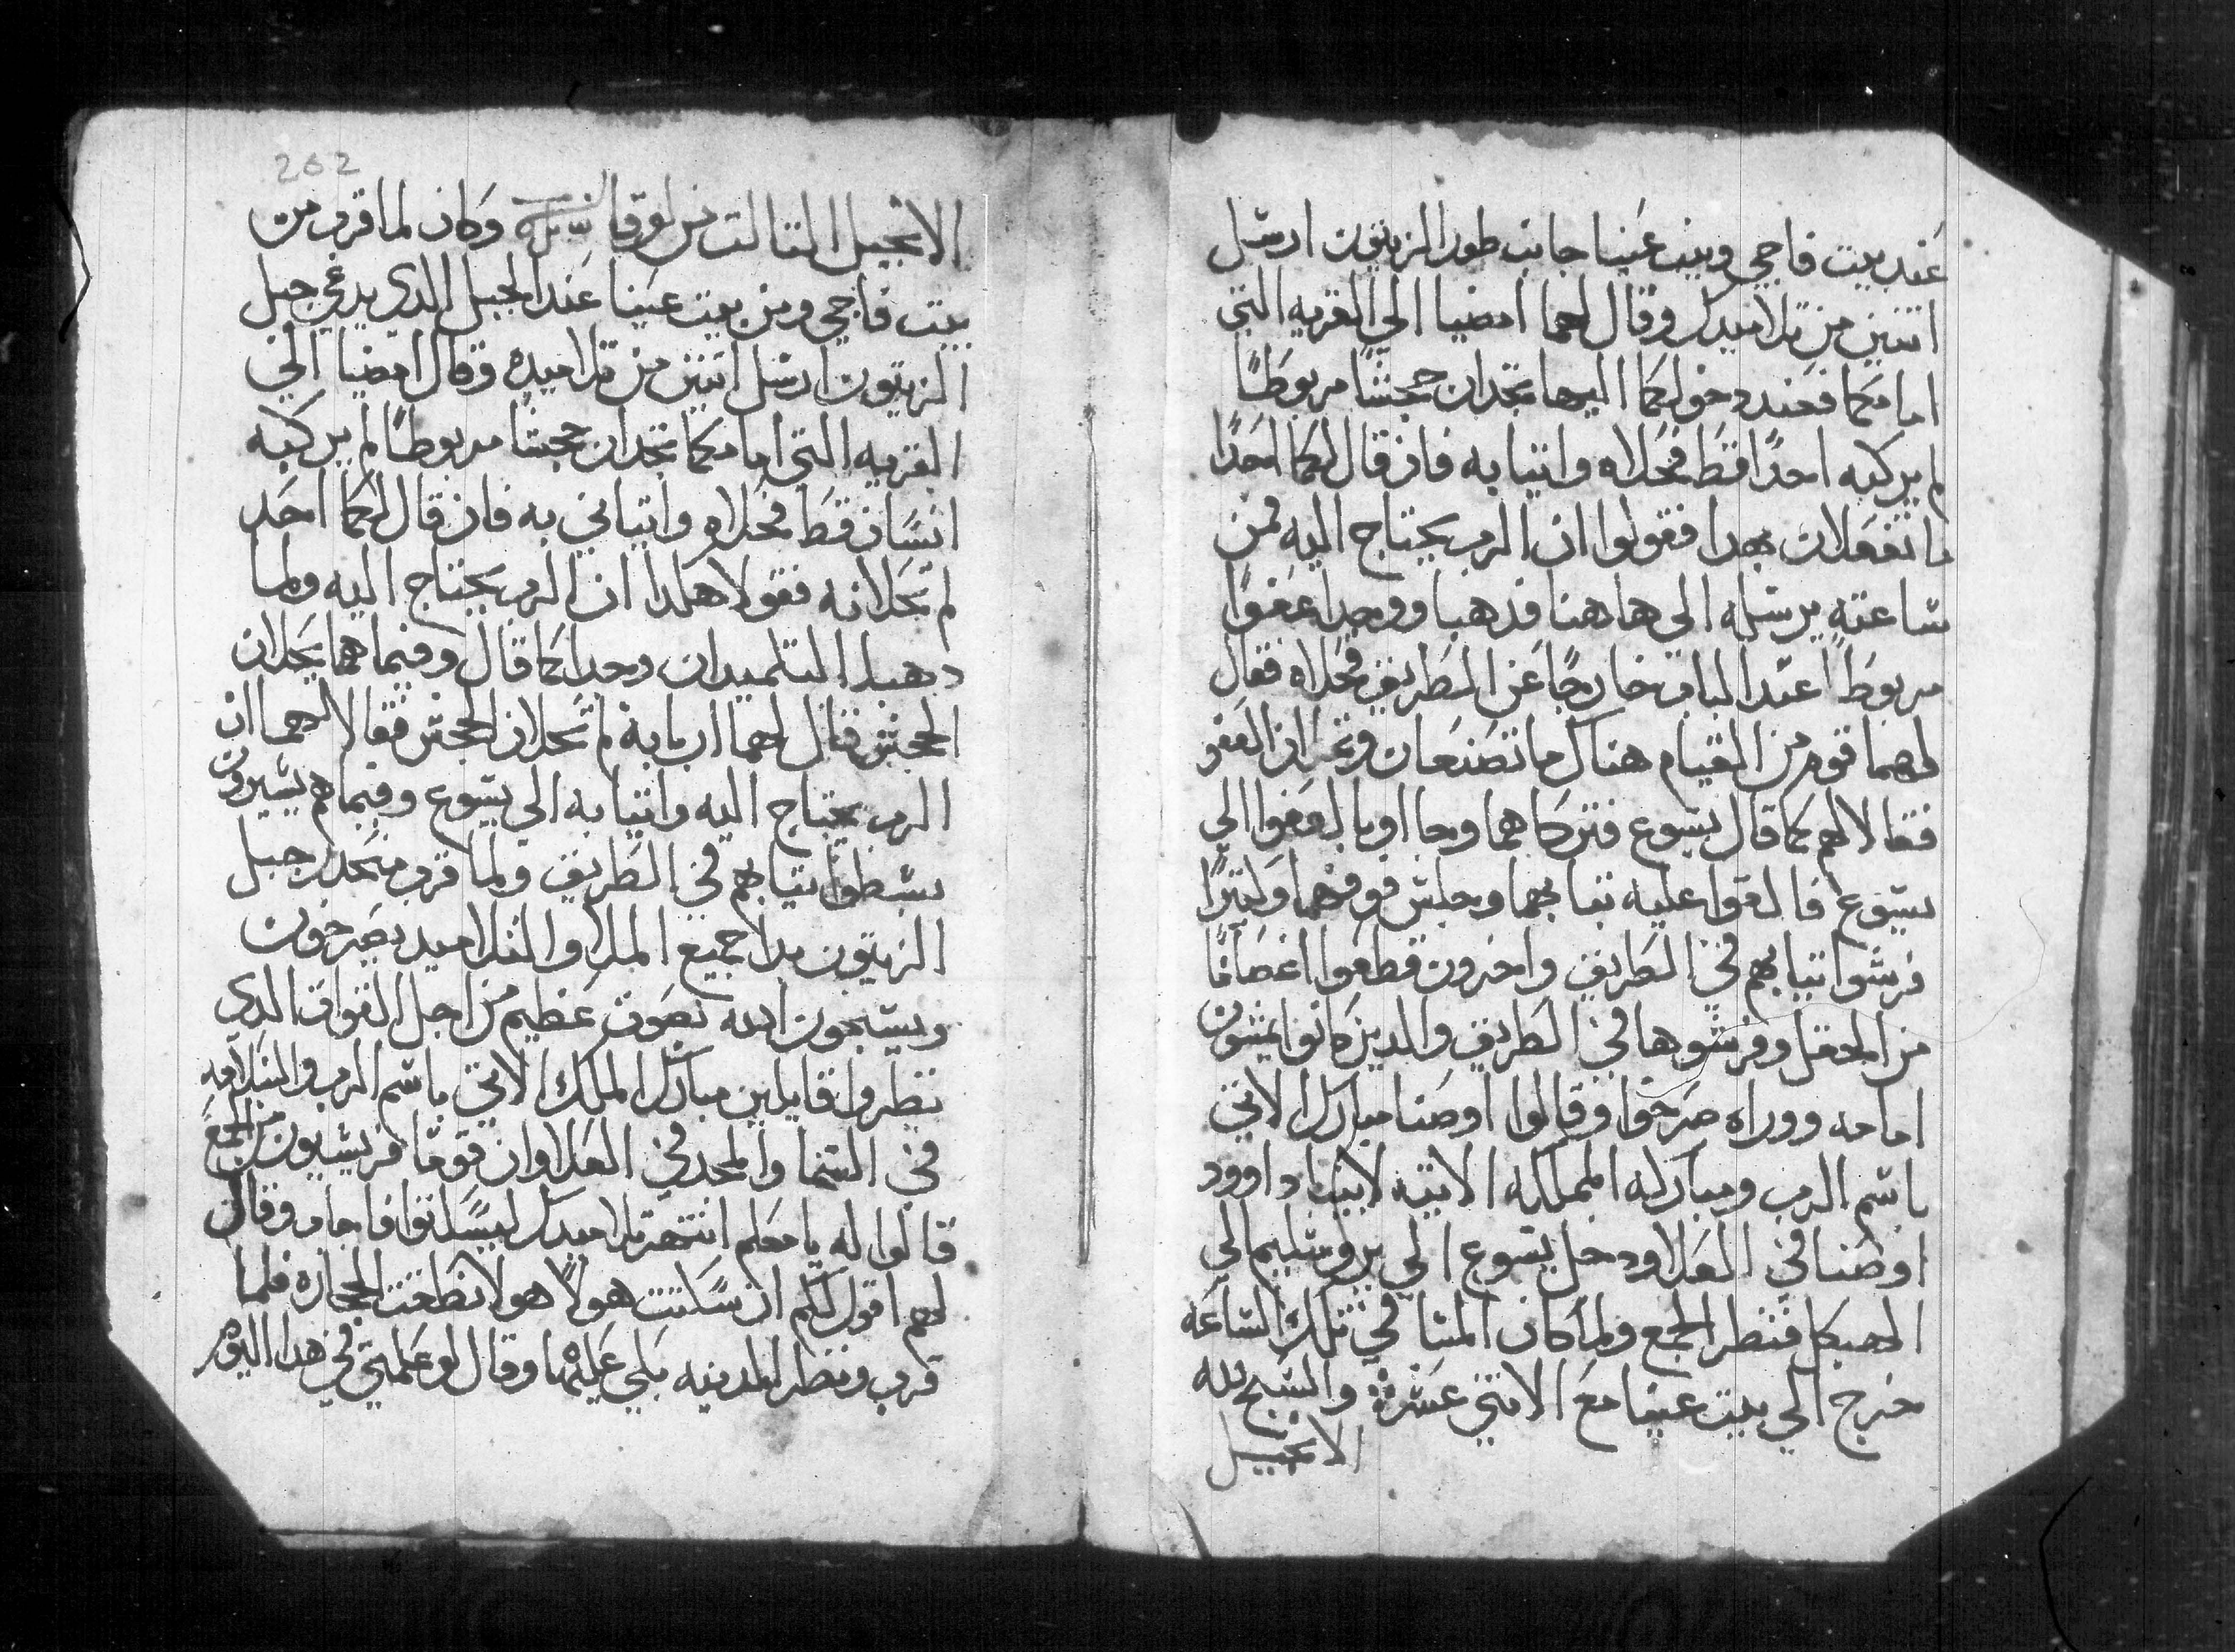 عند بيت فاجي وبيت عنيا جانب طور الزيتون ارسل
اتنين من تلاميدك وقال لهما امضيا الي القريه التي
امامكما فعند دخولكما اليها تجدان جحشًا مربوطًا
لم يركبه احدًا قط فحلاه واتيا به فان قال لكما احدًا
ما تفعلان بهدا فقولوا ان الرب يحتاج اليه فمن
ساعته يرسله الي هاهنا فدهبا ووجدا عفوًا
مربوطًا عند الباب خارجًا عن الطريق فحلاه فقال
لهما قوم من القيام هناك ما تصنعان وتحلان العفو
فقالا لهم كما قال يسوع فتركاهما وجااوا بالعفوا الي
يسوع فالقوا عليه تيابهما وجلس فوقهما وكتيرًا
فرشوا تيابهم في الطريق واخرون قطعوا اغصانًا
من الحقل وفرشوها في الطريق والدين كانوا يمشون
امامه ووراه صرخوا وقالوا اوصنا مبارك الاتي
باسم الرب ومباركه المملكه الاتيه لابينا داوود
اوصنا في العلا ودخل يسوع الي يروشليم الي
الهيكل فنظر الجمع ولما كان المسا في تلك الساعه
خرج الي بيت عنيا مع الاتني عشرة والسبح لله
الانجيل
262
الانجيل التالت من لوقا وكان لما قرب من
بيت فاجي ومن بيت عنيا عند الجبل الدي يدعي جبل
الزيتون ارسل اتنين من تلاميده وقال امضيا الي
القريه التي امامكما تجدان جحشًا مربوطًا لم يركبه
انسان قط فحلاه واتياني به فان قال لكما احد
لم تحلانه فقولا هكدا ان الرب يحتاج اليه ولما
دهبا التلميدان وجدا كما قال وفيما هما يحلان
الجحش قال لهما اربابه لم تحلان الجحش فقالا لهما ان
الرب يحتاج اليه واتيا به الي يسوع وفيما هم يسيرون
بسطوا تيابهم في الطريق ولما قرب منحدر جبل
الزيتون بدا جميع الملا والتلاميد يصرخون
ويسبحون الله بصوت عظيم من اجل القوات الدي
نظروا قايلين مبارك الملك الاتي باسم الرب والسلامه
في السما والمجد في العلا وان قومًا فريسيون من الجمع
قالوا له يا معلم انتهر تلاميدك ليسكتوا فاجاب وقال
لهم اقول لكم ان سكتت هولا هولا نطقت الحجاره فلما
قرب ونظر المدينه بكي عليها وقال لو علمتي في هدا اليوم